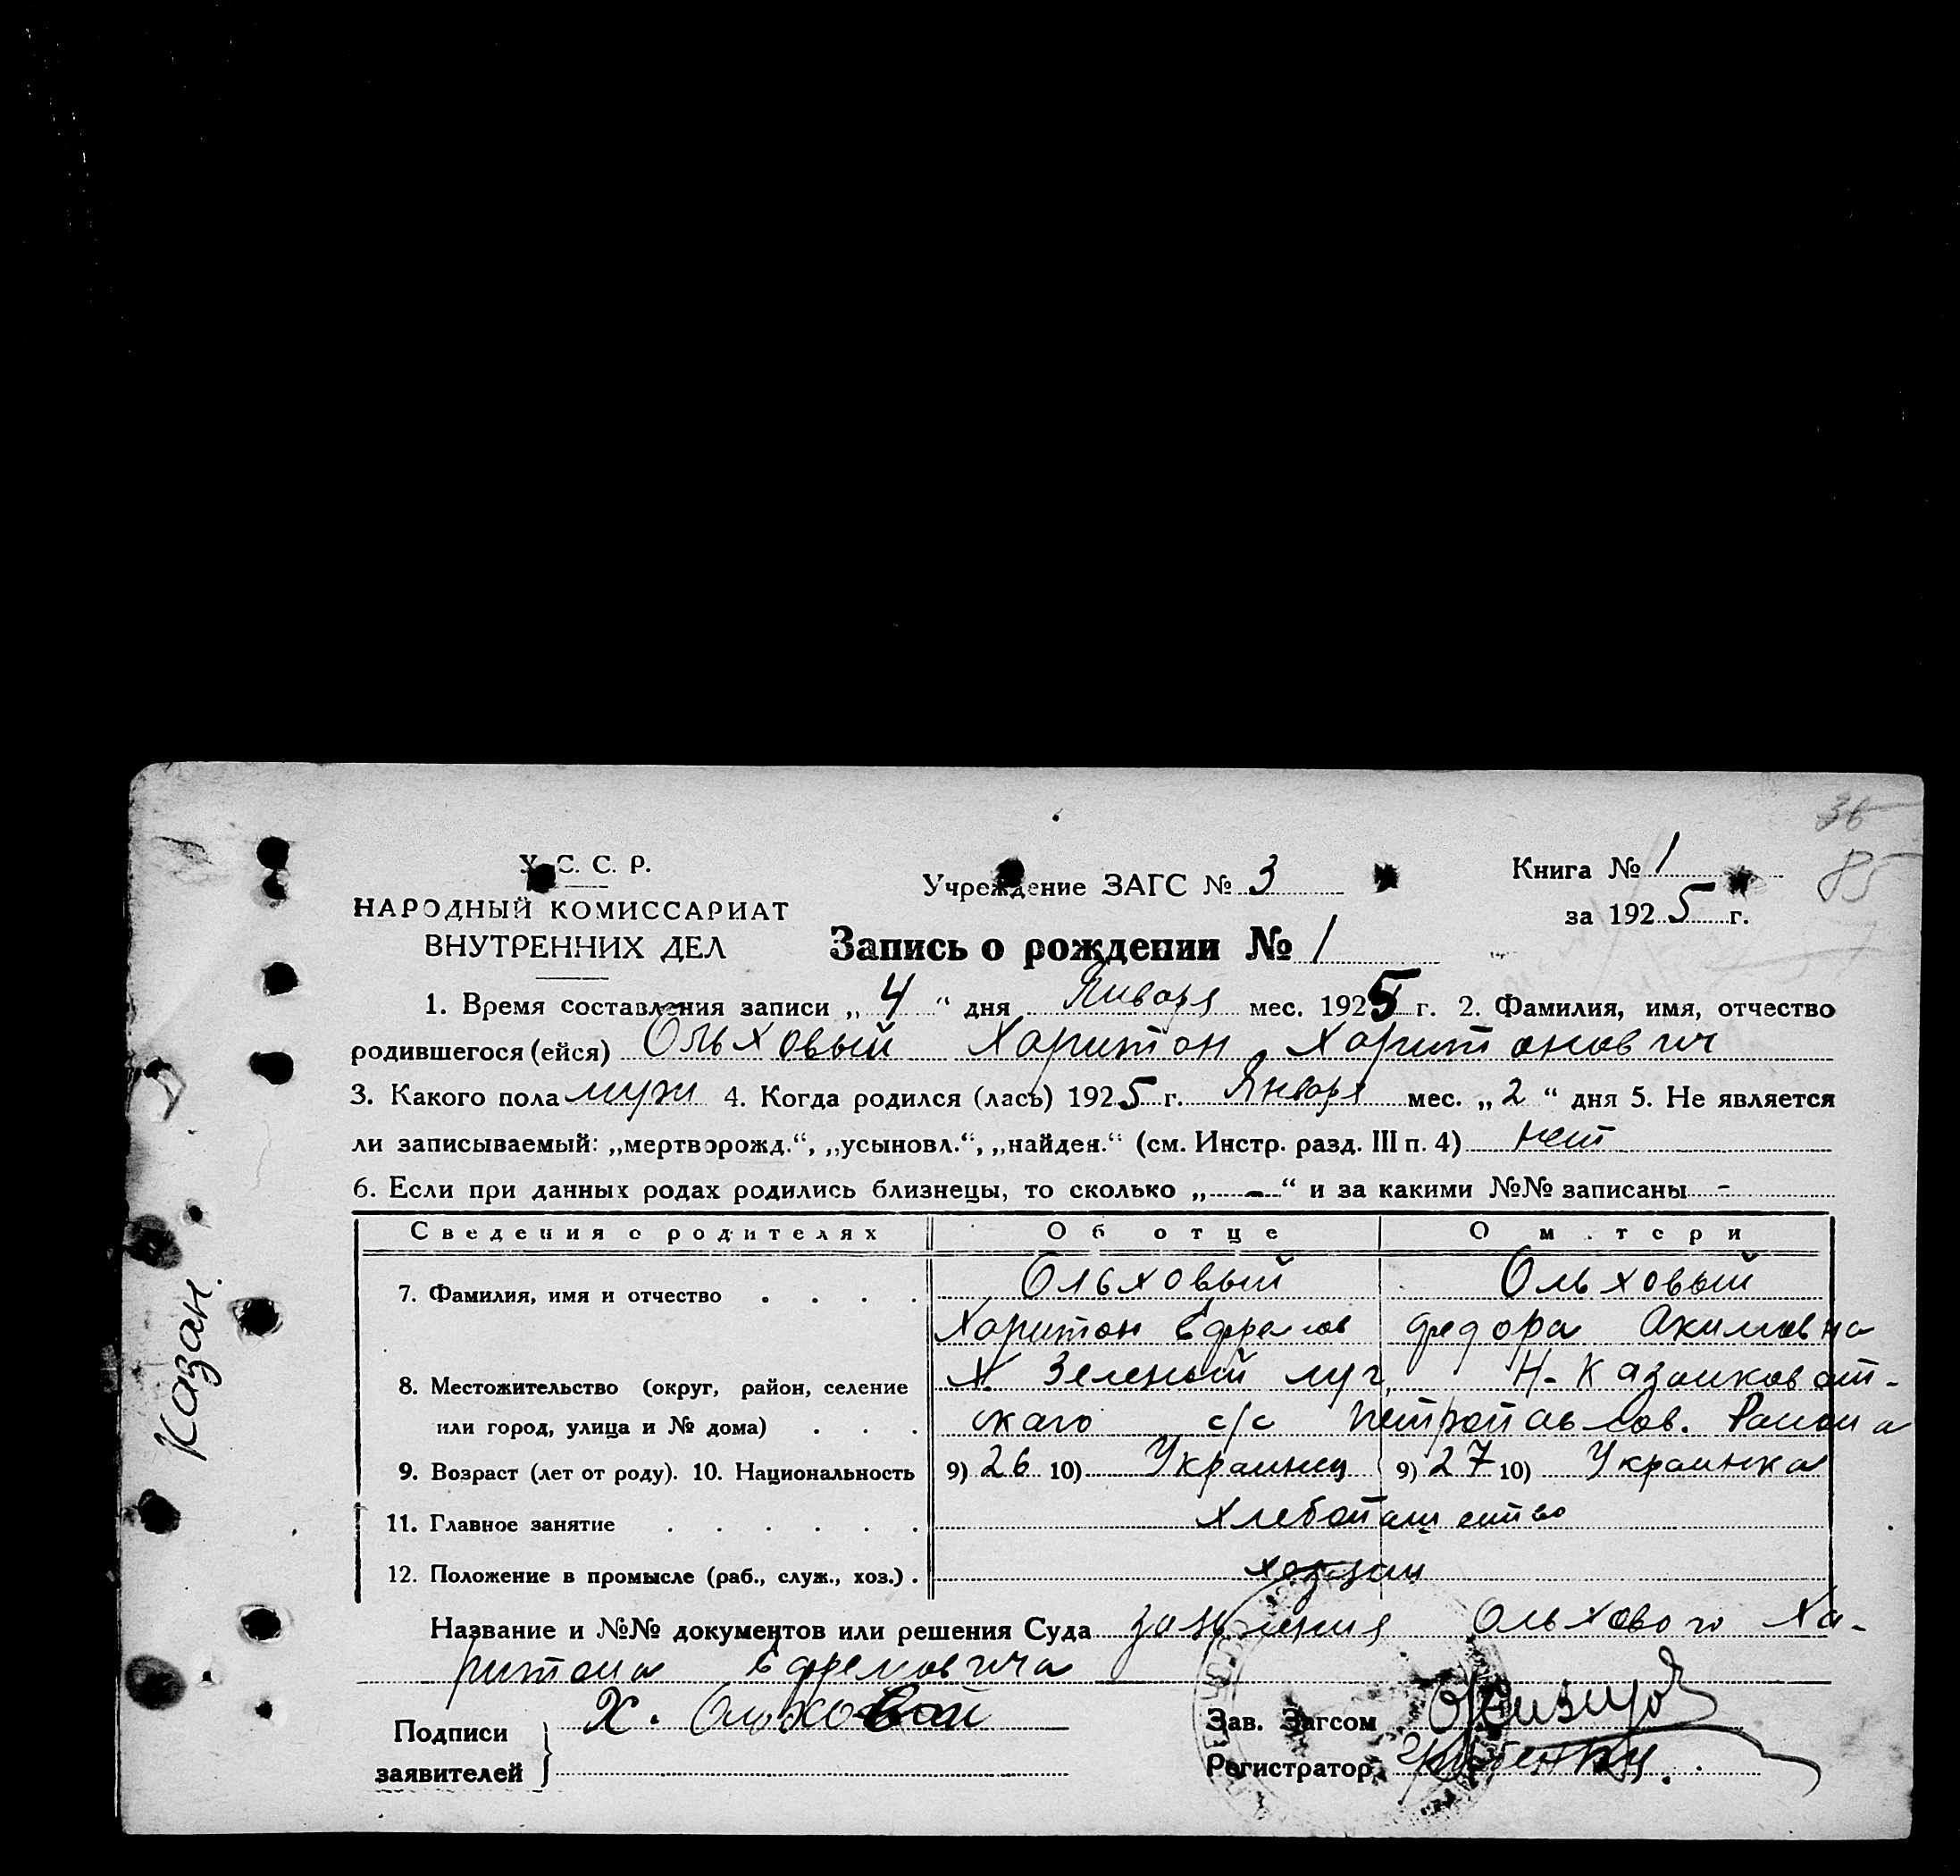 36
85
У.С.С.Р.
НАРОДНЫЙ КОМИССАРИАТ
ВНУТРЕННИХ ДЕЛ
Учреждение ЗАГС № 3
Книга № 1
за 1925 г.
Запись о рождении № 1
1. Время составления записи „4“ дня Января мес. 1925 г. 2. Фамилия, имя, отчество
родившегося (ейся) Ольховый Харитон Харитонович
3. Какого пола муж 4. Когда родился (лась) 1925 г. Января мес. „2“ дня 5. Не является
ли записываемый: „мертворожд.“, „усыновл.“, „найден.“ (см. Инстр. разд. III п. 4) нет
6. Если при данных родах родились близнецы, то сколько „-“ и за какими №№ записаны -
Сведения о родителях Об отце О м.тери
7. Фамилия, имя и отчество . . . . Ольховый Ольховый
Харитон Ефремов Федора Акимовна
8. Местожительство (округ, район, селение Х. Зеленый луг, Н-Казанковат-
или город, улица и № дома) . . . скаго с/с Петропавлов. Района
9. Возраст (лет от роду). 10. Национальность 9) 26 10) Украинец 9) 27 10) Украинка
11. Главное занятие . . . . . . Хлебопашество
12. Положение в промысле (раб., служ., хоз.) . хозяин
Название и №№ документов или решения Суда заявления Ольхового Ха-
ритона Ефремовича
Подписи
заявителей
Х. Ольховой
Зав. Загсом
Регистратор
Казан.